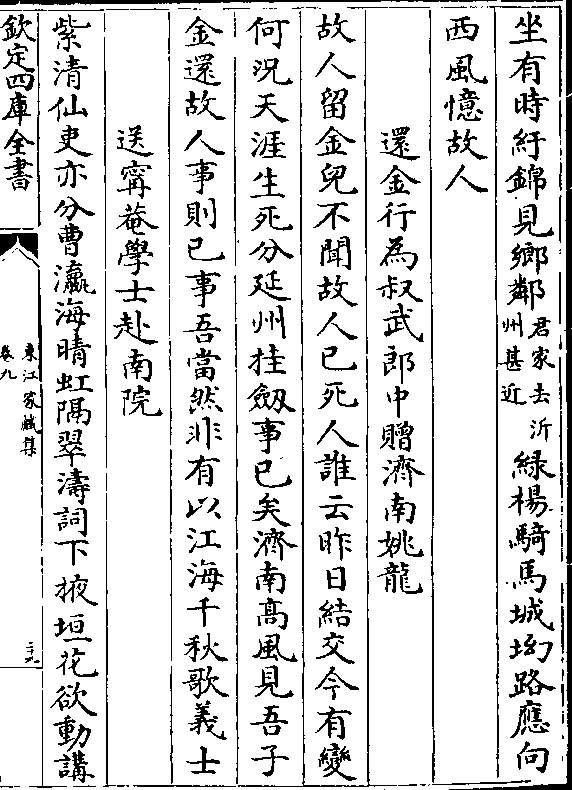 坐有時紆錦見鄉鄰君家去沂州甚近綠楊騎馬城坳路應向
西風憶故人
還金行為叔武郎中贈濟南姚龍
故人留金兒不聞故人已死人誰云昨日結交今有變
何況天涯生死分延州挂劔事已矣濟南髙風見吾子
金還故人事則已事吾當然非有以江海千秋歌義士
送寗菴學士赴南院
紫清仙吏亦分曹瀛海晴虹隔翠濤詞下掖垣花欲動講
欽定四庫全書
東江家藏集
卷九
三十九